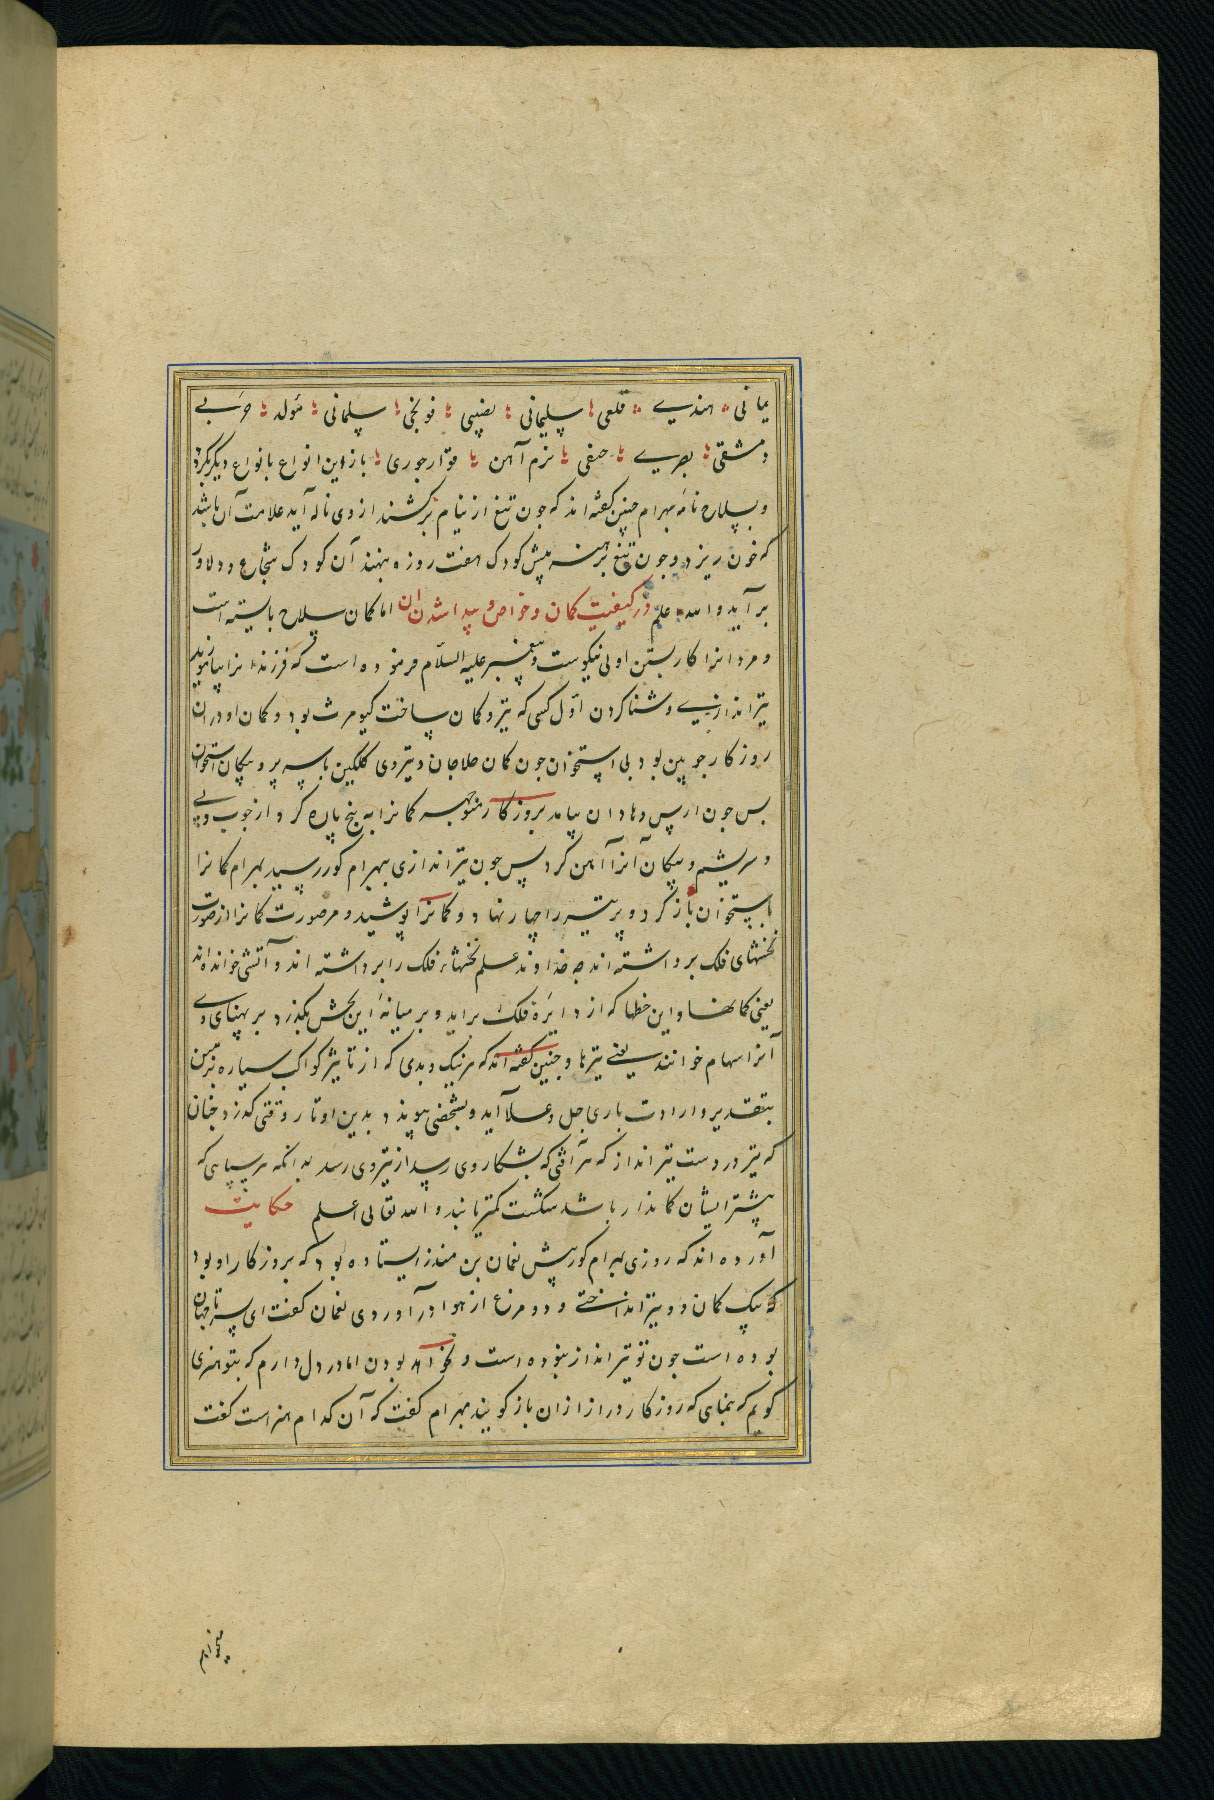 یمانی هندیی قلعی سلیمانی نصیبی فونجی سلمانی مولد حربی
دمشقی بصریی حنفی نرم آهن قواره‌جوری باز این انواع بانواع دیگر بگردد
و بسلاح نامه بهرام چنین کفته اند که جون تیغ از نیام برکشند از وی ناله آید علامت آن باشد
که خون ریزد و جون تیغ برهنه پیش کودک هفت روزه بنهند آن کودک شجاع و دلاور
برآید و الله علم در کیفیت کمان و خواص و پیدا شدن آن اما کمان سلاح بایسته است
و مردانرا کار بستن اولی نیکوست و پیغمبر علیه السلام فرموده است که فرزندانرا بیاموزید
تیراندازیی و شنا کردن اول کسی که تیر و کمان ساخت کیومرث بود و کمان او دران
روزکار جوبین بود بی استخوان جون کمان حلاجان و تیر وی کلکین باسه پر و پیکان استخوان
بس جون ارس وهادان بیامد بروزکار منوجهر کمانرا به پنج پاره کرد از جوب و پی
و سریشم و پیکان آنرا آهن کرد پس جون تیراندازی ببهرام کور رسید بهرام کمانرا
با ستخوان باز کرد و برتیر را چهار نهاد و کمانرا پوشید و مر صورت کمانرا از صورت
بخشهای فلک برداشته اند جه خداوند علم بخشهاء فلک را برداشته اند و آتشی خوانده اند
یعنی کمانها و این خطها که از دایره فلک براید و بر میانه این بخش بکذرد بر پهنای وی
آنرا سهام خوانند یعنی تیرها و جنین کفته اند که هر نیک و بدی که از تاثیر کواکب سیاره بر زمین
بتقدیر و ارادت باری جل و علا آید و بشخصی پیوندد بدین اوتار و قسی کذرد جنان
که تیر در دست تیرانداز که هر آفتی که بشکار وی رسد از تیر وی رسد بدانکه هر سپاهی که
پیشتر ایشان کماندار باشد شکست کمتر یابند و الله تعالی اعلم حکایت
آورده اند که روزی بهرام کور پیش نعمان بن منذر ایستاده بود که بروزکار او بود
که بیک کمان دو تیر انداختی و دو مرغ از هوا درآوردی نعمان کفت ای پسر تا جهان
بوده است جون تو تیرانداز نبوده است و نخواهد بودن اما در دل دارم که بتو هنری
کویم که بنمای که روزکار دراز ازان باز کویند بهرام کفت که آن کدام هنر است کفت
میخواهم